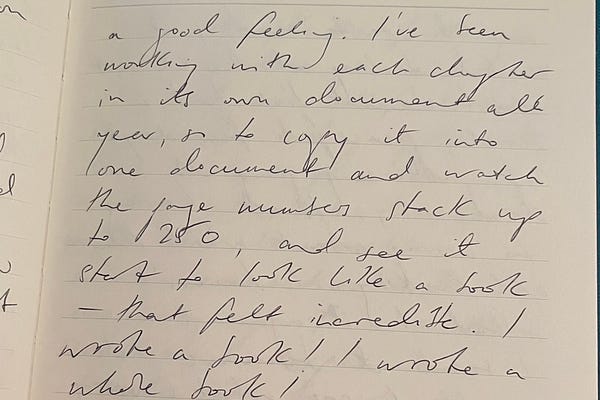 a good feeling. I've been
working with each chapter
in its own document all
year, so to copy it into
one document and watch
the page numbers stack up
to 250, and see it
start to look like a book
— that felt incredible. I
wrote a book! I wrote a
whole book!